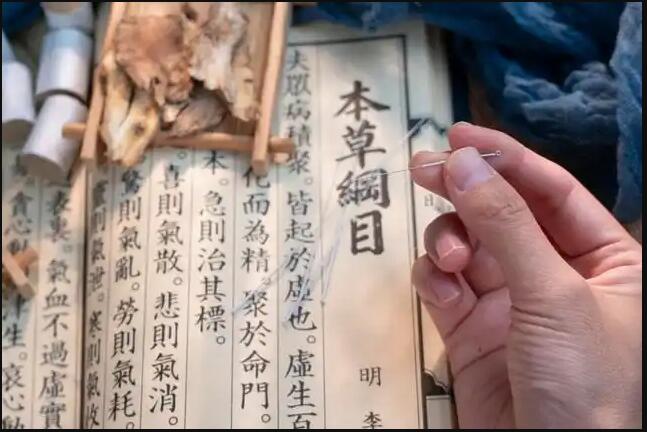 本草綱目
明 李
夫眾病積聚。皆起於虛也。虛生百
化而為精。聚於命門。
本。急則治其標。
喜則氣散。悲則氣消。
驚則氣亂。勞則氣耗。
則氣泄。寒則氣收
表裏。氣血不過虛實
貪心動 津生。哀心動